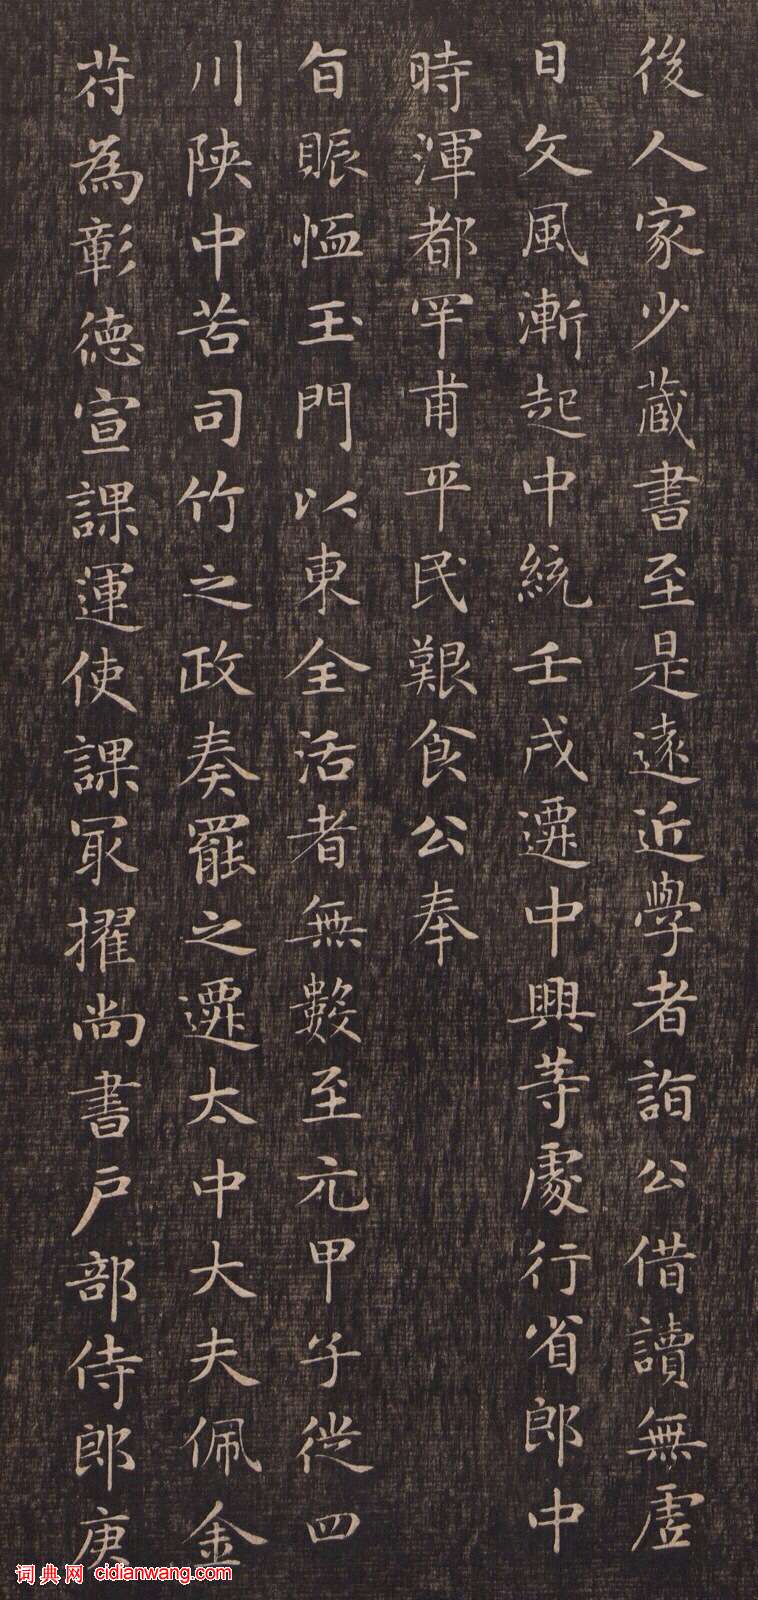 後人家少蔵書至是逺近學者詣公借讀無虚
日文風漸起中統壬戌遷中興等處行省郎中
時渾都罕甫平民艱食公奉
旨賑恤玉門以東全活者無數至元甲子従四
川陜中苦司竹之政奏罷之遷太中大夫佩金
苻為彰徳宣課運使課冣擢尚書戸部侍郎庚
词典网 cidianwang.com